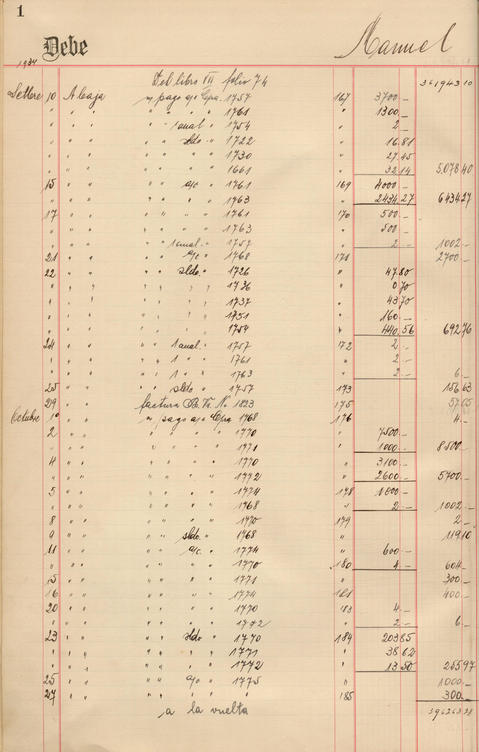 1
Debe Manuel
1934
Del libro VII folio 74 361943 10
Settbre 10 A Caja s/ pago a/c Cpra. 1757 167 3700 —
" " " " " " " 1761 " 1300 —
" " " " 1 anual " 1754 " 2 —
" " " " sldo. " 1722 " 16 81
" " " " " " 1730 " 27 45
" " " " " " 1661 " 32 14 5,078 40
15 " " " " a/c " 1761 169 4000 —
" " " " " " " 1763 " 2434 27 6434 27
17 " " " " " " 1761 170 500 —
" " " " " " " 1763 " 500 —
" " " " 1 anual " 1757 " 2 — 1002 —
21 " " " " a/c " 1768 171 2700 —
22 " " " " sldo. " 1726 " 47 80
" " " " " " " 1736 " 0 70
" " " " " " " 1737 " 43 70
" " " " " " " 1751 " 160 —
" " " " " " " 1754 " 440 56 692 76
24 " " " " 1 anual " 1757 172 2 —
" " " " 1 " " 1761 " 2 —
" " " " 1 " " 1763 " 2 — 6 —
25 " " " " sldo " 1757 173 156 63
29 " " factura B. Tr. No. 1823 175 57 05
Octubre 1º " " s/ pago a/c Cpra 1768 176 4 —
2 " " " " " " 1770 " 7500 —
" " " " " " " 1771 " 1000 — 8500 —
4 " " " " " " 1770 " 3100 —
" " " " " " " 1772 " 2600 — 5700 —
5 " " " " " " 1774 178 1000 —
" " " " " " " 1768 " 2 — 1002 —
8 " " " " " " 1770 179 2 —
9 " " " " sldo. " 1768 " 119 10
11 " " " " a/c. " 1774 " 600 —
" " " " " " " 1770 180 4 — 604 —
15 " " " " " " 1771 " 300 —
16 " " " " " " 1774 181 400 —
20 " " " " " " 1770 183 4 —
" " " " " " " 1772 " 2 — 6 —
23 " " " " sldo " 1770 184 203 85
" " " " " " " 1771 " 38 62
" " " " " " " 1772 " 13 50 255 97
25 " " " " a/c " 1775 " 1000 —
27 " " " " " " " 185 300 —
a la vuelta 396263 28